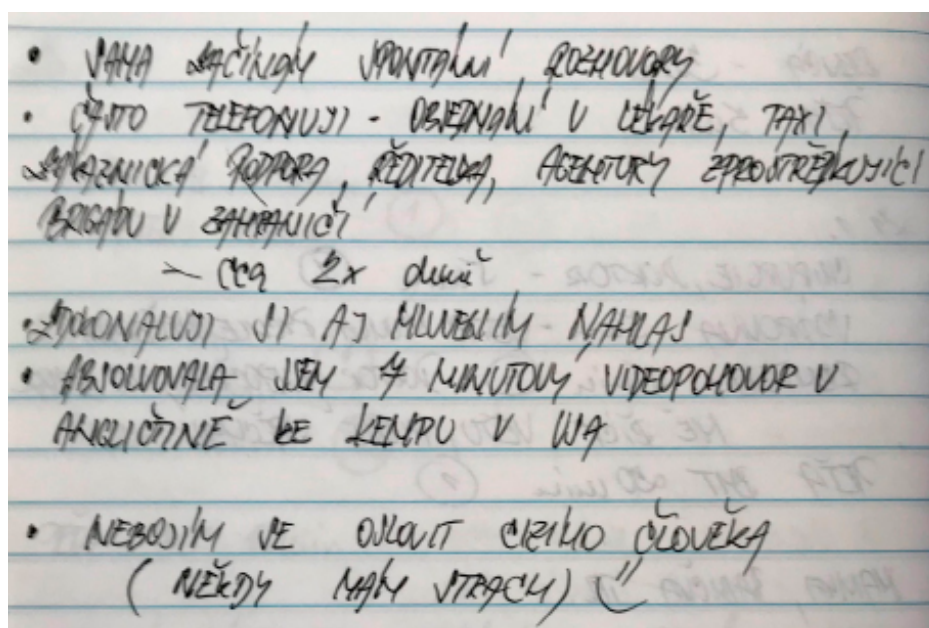 • SAMA ZAČÍNÁM SPONTÁNNÍ ROZHOVORY
• ČASTO TELEFONUJI - OBJEDNÁNÍ U LÉKAŘE, TAXI,
ZÁKAZNICKÁ PODPORA, ŘEDITELKA, AGENTURY ZPROSTŘEDKUJÍCÍ
BRIGÁDU V ZAHRANIČÍ
- cca 2x denně
• ZDOKONALUJI SI AJ MLUVENÍM NAHLAS
• ABSOLVOVALA JSEM MINUTOVÝ VIDEOPOHOVOR V
ANGLIČTINĚ KE KEMPU V
• NEBOJÍM SE OSLOVIT CIZÍHO ČLOVĚKA
(NĚKDY MÁM STRACH)